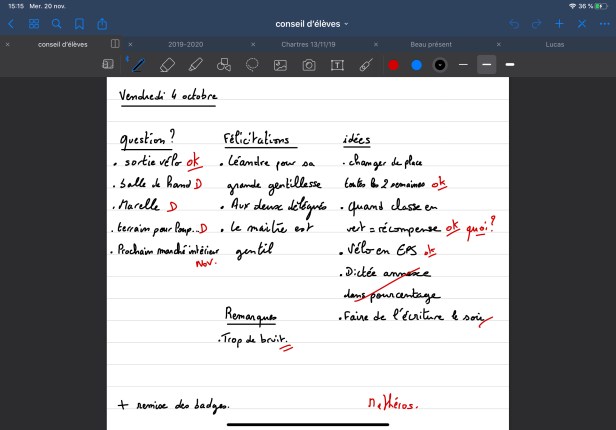 15:15 Mer. 20 nov.
36 %
conseil d'élèves
conseil d'élèves
2019-2020
Chartres 13/11/19
Beau présent
Lucas
Vendredi 4 octobre
question ?
. sortie vélo ok
. balle de hand D
. Marelle D
. terrain pour loup... D
. Prochain marché intérieur
Nov.
Félicitations
. Léandre pour sa
grande gentillesse
. Aux deux délégués
. Le maître est
gentil
Remarques
. Trop de bruit.
idées
. changer de place
toutes les 2 semaines ok
. Quand classe en
vert = récompense ok quoi ?
. Vélo en EPS ok
. Dictée
dans pourcentage
. Faire de l'écriture le soir
+ remise des badges.